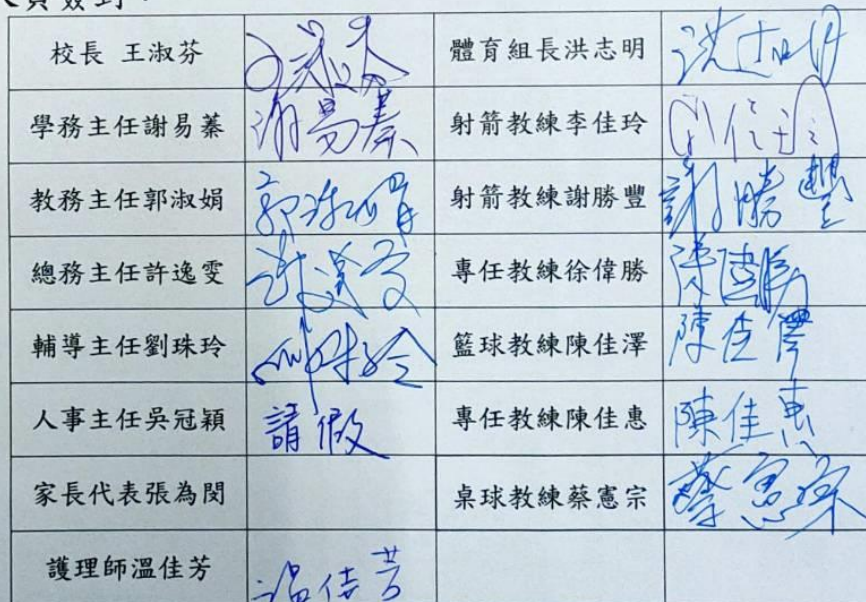 員簽到：
校長 王淑芬
體育組長洪志明
學務主任謝易蓁 謝易蓁
射箭教練李佳玲
教務主任郭淑娟 郭淑娟
射箭教練謝勝豐 謝勝豐
總務主任許逸雯 許逸雯
專任教練徐偉勝
輔導主任劉珠玲
籃球教練陳佳澤 陳佳澤
人事主任吳冠穎 請假
專任教練陳佳惠 陳佳惠
家長代表張為閔
桌球教練蔡憲宗 蔡憲宗
護理師溫佳芳 溫佳芳